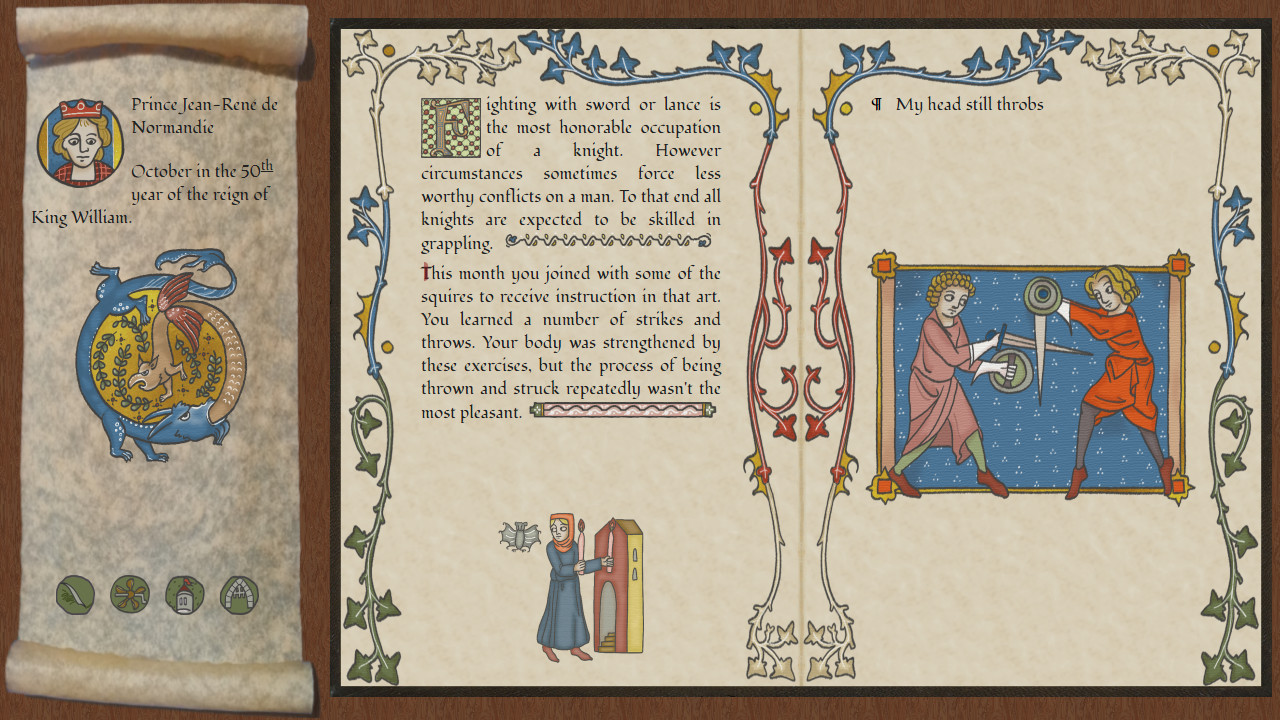 Prince Jean-René de
Normandie
October in the 50th
year of the reign of
King William.
Fighting with sword or lance is
the most honorable occupation
of a knight. However
circumstances sometimes force less
worthy conflicts on a man. To that end all
knights are expected to be skilled in
grappling.
This month you joined with some of the
squires to receive instruction in that art.
You learned a number of strikes and
throws. Your body was strengthened by
these exercises, but the process of being
thrown and struck repeatedly wasn't the
most pleasant.
¶ My head still throbs